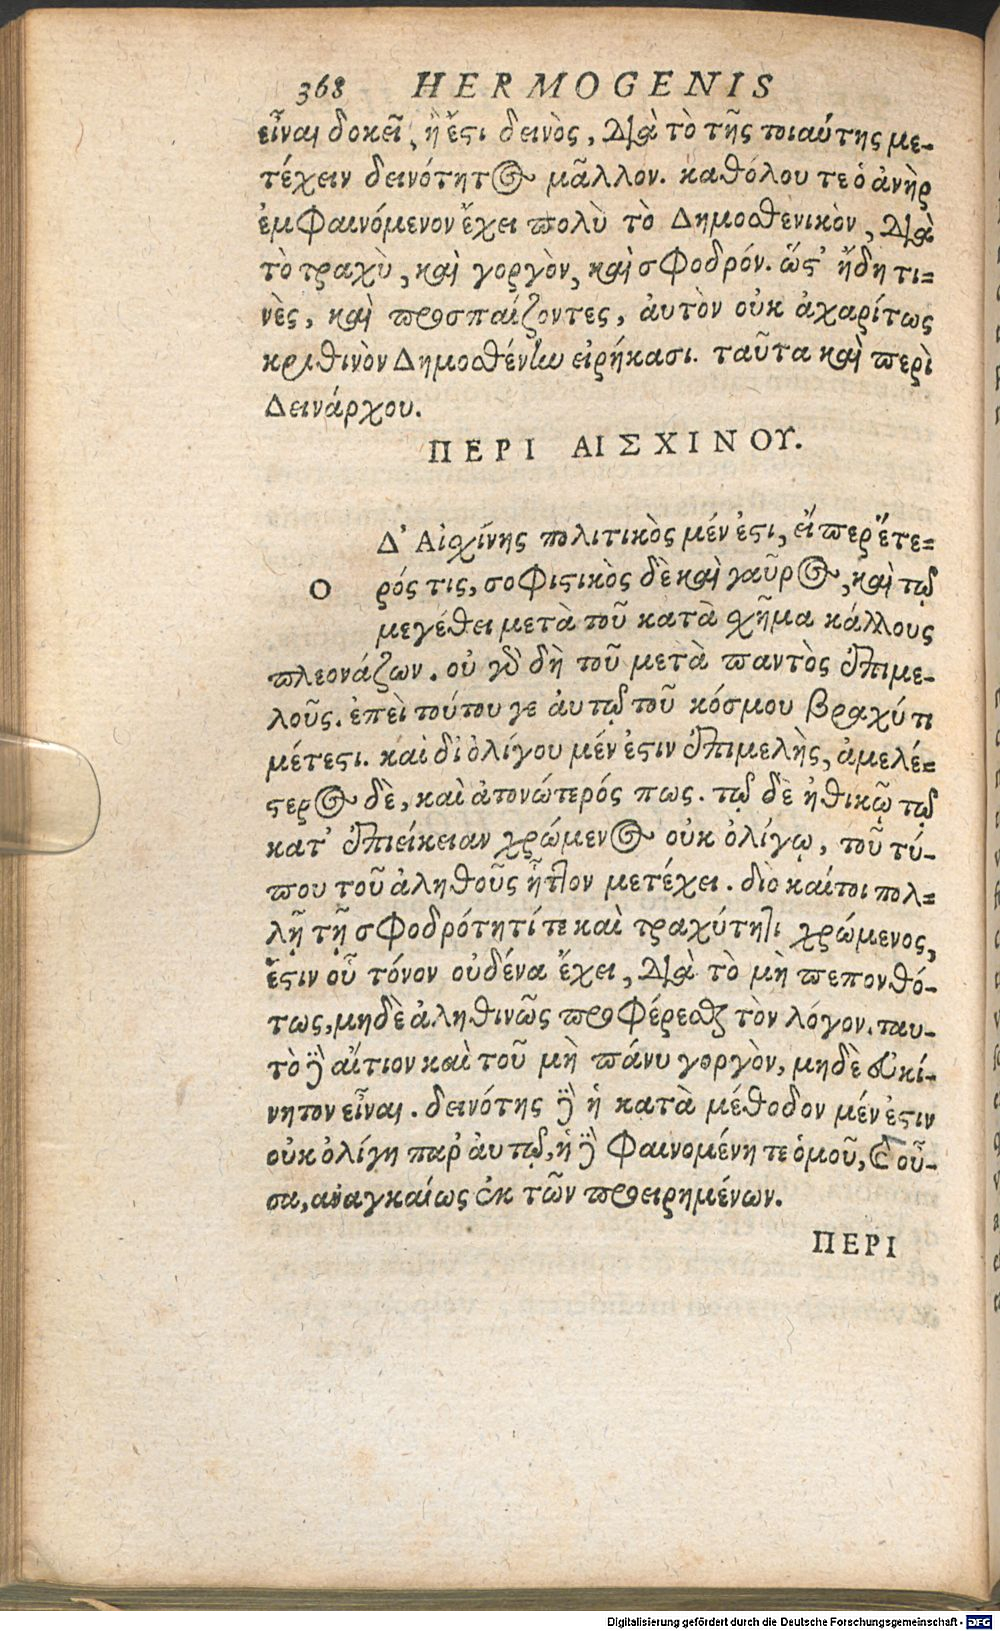 368 HERMOGENIS
εἶναι δοκεῖ, ἢ ἔστι δεινὸς, διὰ τὸ τῆς τοιαύτης με-
τέχειν δεινότητος μᾶλλον. καθόλου τε ὁ ἀνὴρ
ἐμφαινόμενον ἔχει πολὺ τὸ Δημοσθενικὸν, διὰ
τὸ τραχὺ, καὶ γοργὸν, καὶ σφοδρόν. ὥστ' ἤδη τι=
νὲς, καὶ προσπαίζοντες, ἀυτὸν οὐκ ἀχαρίτως
κριθινὸν Δημοσθένην εἰρήκασι. ταῦτα καὶ περὶ
Δεινάρχου.
ΠΕΡΙ ΑΙΣΧΙΝΟΥ.
Δ' Αἰσχίνης πολιτικὸς μέν ἐστι, εἴπερ ἕτε=
Ο ρός τις, σοφιστικὸς δὲ καὶ γαῦρος, καὶ τῷ
μεγέθει μετὰ τοῦ κατὰ σχῆμα κάλλους
πλεονάζων. οὐ γὰρ δὴ τοῦ μετὰ παντὸς ἐπιμε-
λοῦς. ἐπεὶ τούτου γε ἀυτῷ τοῦ κόσμου βραχύ τι
μέτεστι. καὶ δι' ὀλίγου μέν ἐστιν ἐπιμελὴς, ἀμελέ=
στερος δὲ, καὶ ἀτονώτερός πως. τῷ δὲ ἠθικῷ τῷ
κατ' ἐπιείκειαν χρώμενος οὐκ ὀλίγῳ, τοῦ τύ-
που τοῦ ἀληθοῦς ἧττον μετέχει. διὸ καίτοι πολ=
λῇ τῇ σφοδρότητί τε καὶ τραχύτητι χρώμενος,
ἔστιν οὗ τόνον οὐδένα ἔχει, διὰ τὸ μὴ πεπονθό-
τως, μηδὲ ἀληθινῶς προφέρεσθαι τὸν λόγον. ταυ-
τὸ δὲ αἴτιον καὶ τοῦ μὴ πάνυ γοργὸν, μηδὲ εὐκί-
νητον εἶναι. δεινότης δὲ ἡ κατὰ μέθοδον μέν ἐστιν
οὐκ ὀλίγη παρ' ἀυτῷ, ἡ δὲ φαινομένη τε ὁμοῦ, καὶ οὖ-
σα, αναγκαίως ἐκ τῶν προειρημένων.
ΠΕΡΙ
Digitalisierung gefördert durch die Deutsche Forschungsgemeinschaft - DFG